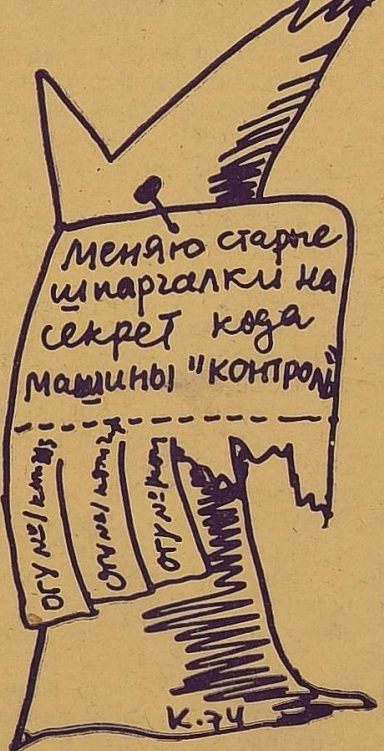 меняю старые
шпаргалки на
секрет кода
машины "контроль"
ОГУ №1
ОГУ №1
ОГУ №
К.74